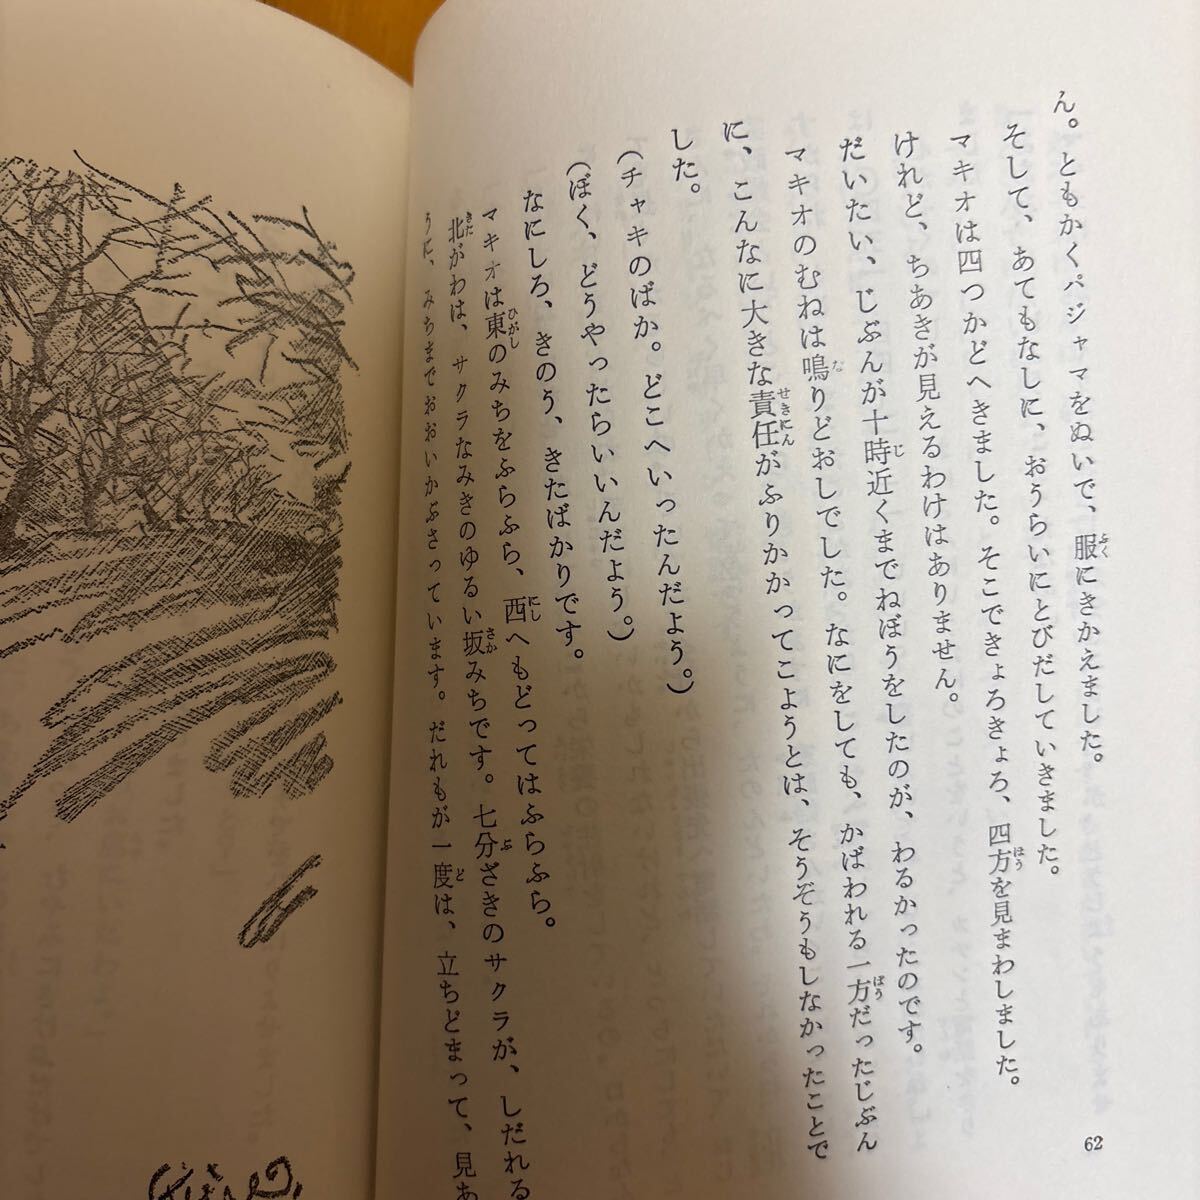 ん。ともかくパジャマをぬいで、服にきかえました。
そして、あてもなしに、おうらいにとびだしていきました。
マキオは四つかどへきました。そこできょろきょろ、四方を見まわしました。
けれど、ちあきが見えるわけはありません。
だいたい、じぶんが十時近くまでねぼうをしたのが、わるかったのです。
マキオのむねは鳴りどおしでした。なにをしても、かばわれる一方だったじぶん
に、こんなに大きな責任がふりかかってこようとは、そうぞうもしなかったことで
した。
(チャキのばか。どこへいったんだよう。)
(ぼく、どうやったらいいんだよう。)
なにしろ、きのう、きたばかりです。
マキオは東のみちをふらふら、西へもどってはふらふら。
北がわは、サクラなみきのゆるい坂みちです。七分ざきのサクラが、しだれる
うに、みちまでおおいかぶさっています。だれもが一度は、立ちどまって、見あ
62